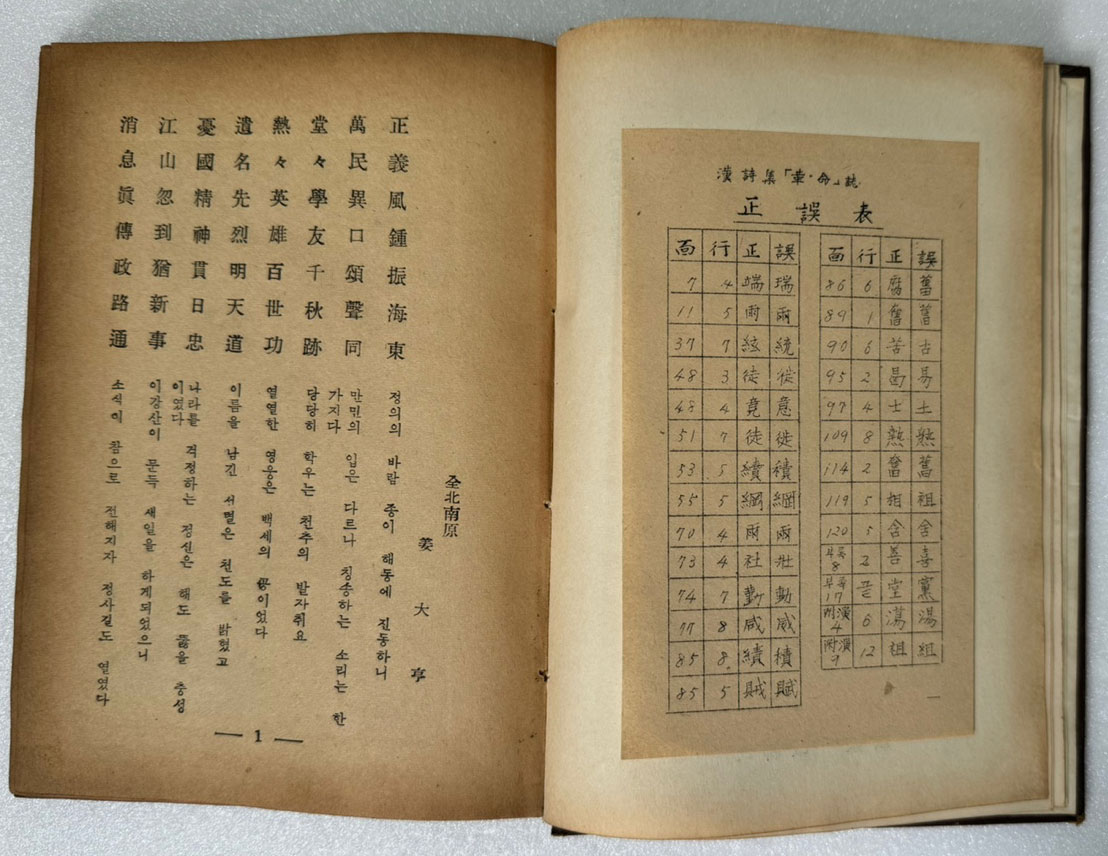 漢詩集「革·命」誌
正誤表
面 行 正 誤
7 4 端 瑞
11 5 雨 兩
37 7 絃 統
48 3 徒 徙
48 4 竟 意
51 7 徒 徙
53 5 續 積
55 5 綱 網
70 4 雨 兩
73 4 社 壯
74 7 勤 動
77 8 咸 威
85 8 績 積
85 5 賊 賦
面 行 正 誤
86 6 舊
89 1 奮 舊
90 6 苦 古
95 2 曷 易
97 4 士 土
109 8 熱
114 2 奮 舊
119 5 相 祖
120 5 舍
부록 8 2 善 喜
부록 17 끝 堂 黨
附演 4 6 蕩 湯
附演 9 12 祖 組
全北南原
姜大亨
正義風鍾振海東
정의의 바람 종이 해동에 진동하니
萬民異口頌聲同
만민의 입은 다르나 칭송하는 소리는 한
가지다
堂々學友千秋跡
당당히 학우는 천추의 발자취요
熱々英雄百世功
열열한 영웅은 백세의 공이었다
遺名先烈明天道
이름을 남긴 서멸은 천도를 밝혔고
憂國精神貫日忠
나라를 걱정하는 정신은 해도 뚫을 충성
이였다
江山忽到猶新事
이강산이 문득 새일을 하게되었으니
消息眞傳政路通
소식이 참으로 전해지자 정사길도 열였다
— 1 —